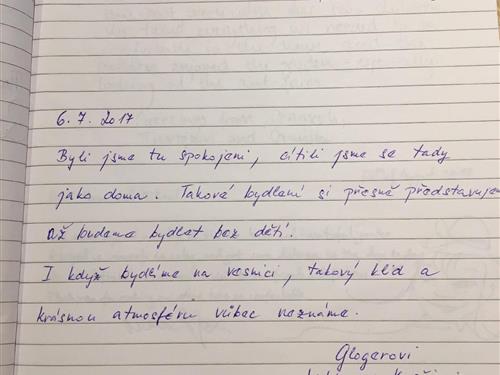 6.7.2017
Byli jsme tu spokojeni, cítili jsme se tady
jako doma. Takové bydlení si přesně představujeme
až budeme bydlet bez dětí.
I když bydlíme na vesnici, takový klid a
krásnou atmosféru vůbec neznáme.
Glogerovi